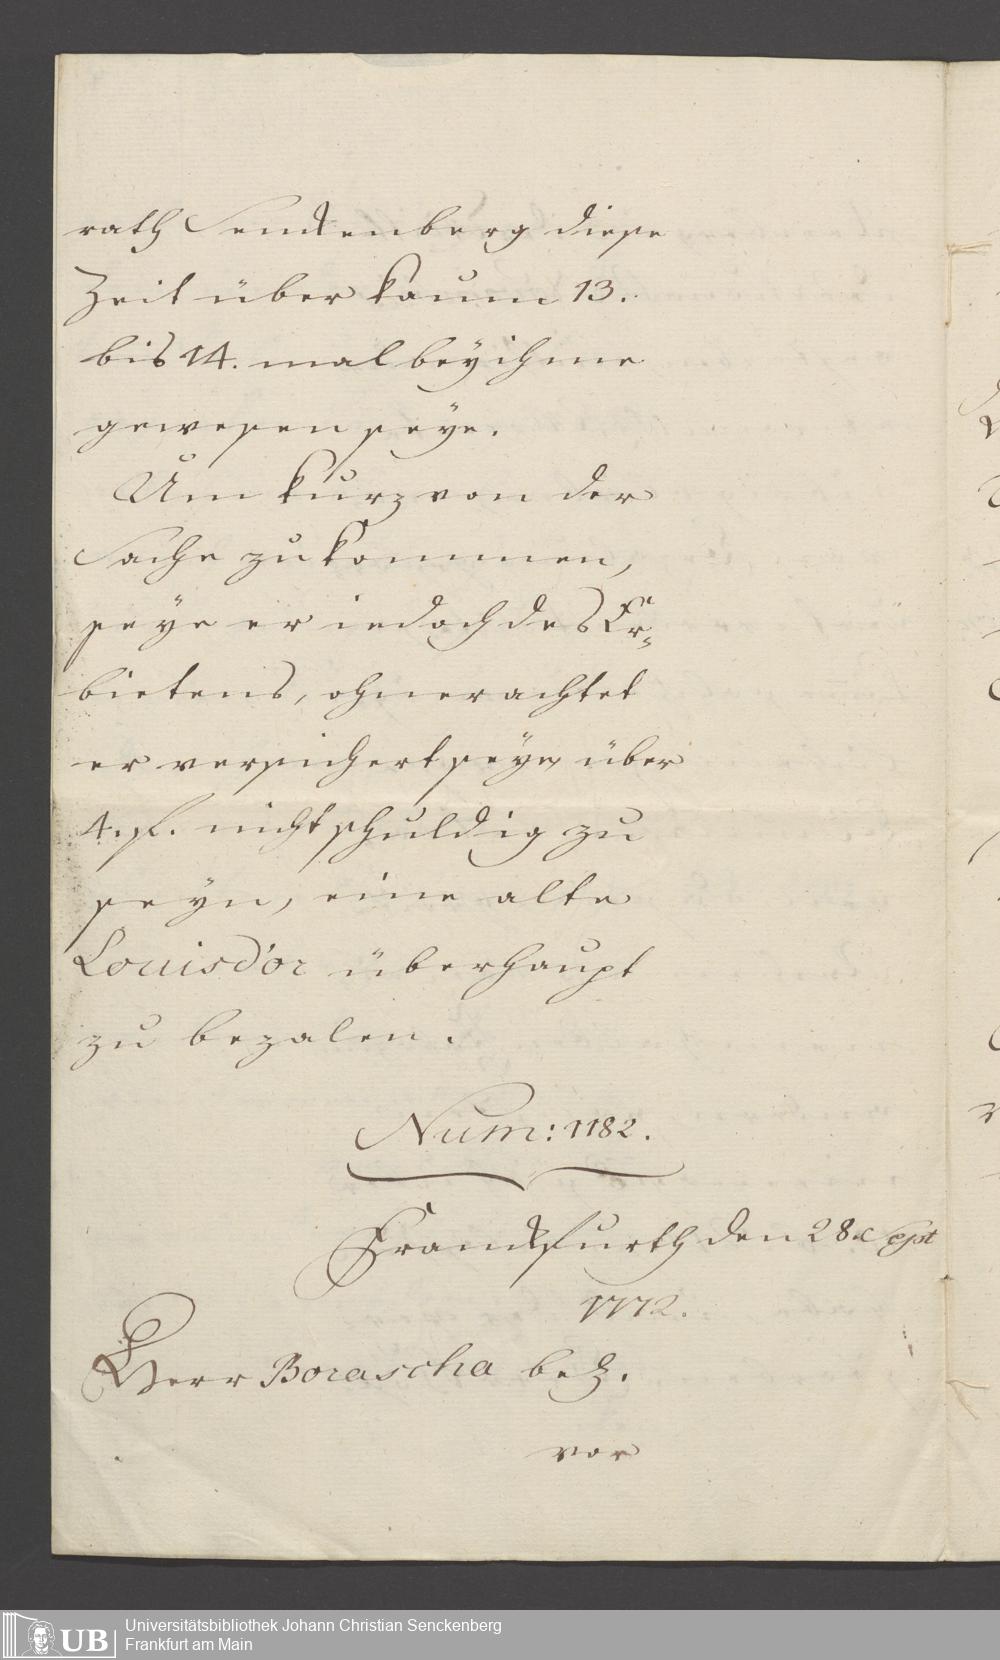 rath Senckenberg diese
Zeit über kaum 13.
bis 14. mal beÿ ihme
gewesen seÿe.
Um kurz von der
Sache zu kommen,
seÿe er iedoch des Er-
bietens, ohnerachtet
er versichert seÿe, über
4. f. nicht schuldig zu
seÿn, eine alte
Louisd'or überhaupt
zu bezalen.
Num: 1182.
Franckfurth den 28 Sept
1772.
Herr Borascha bez.
vor
UB
Universitätsbibliothek Johann Christian Senckenberg
Frankfurt am Main